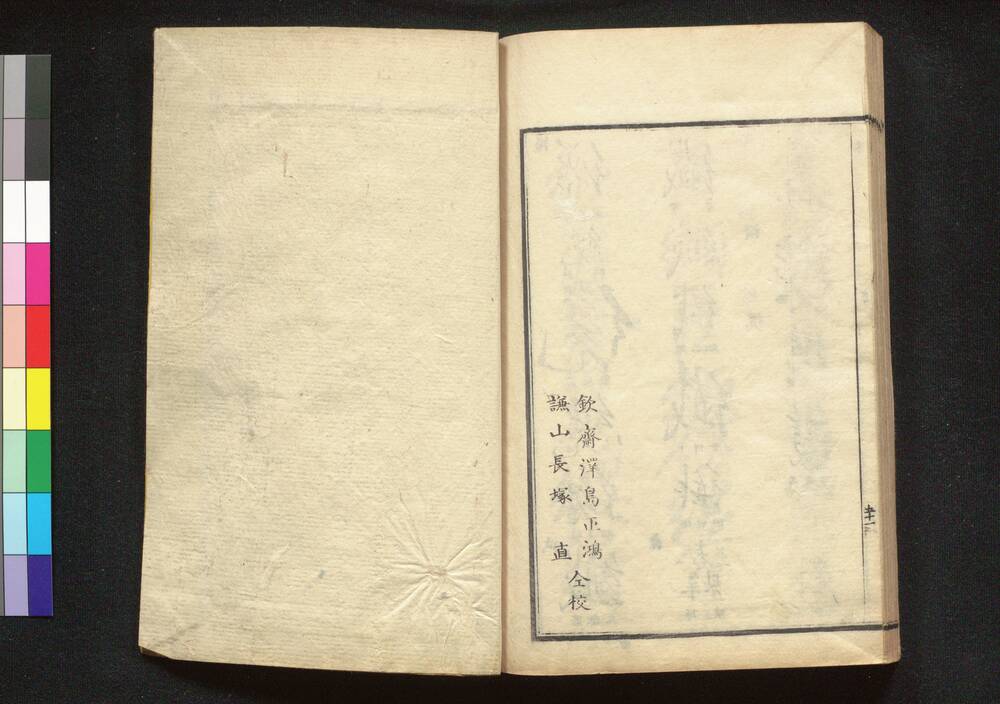 欽齋澤島正鴻
謙山長塚 直
仝校